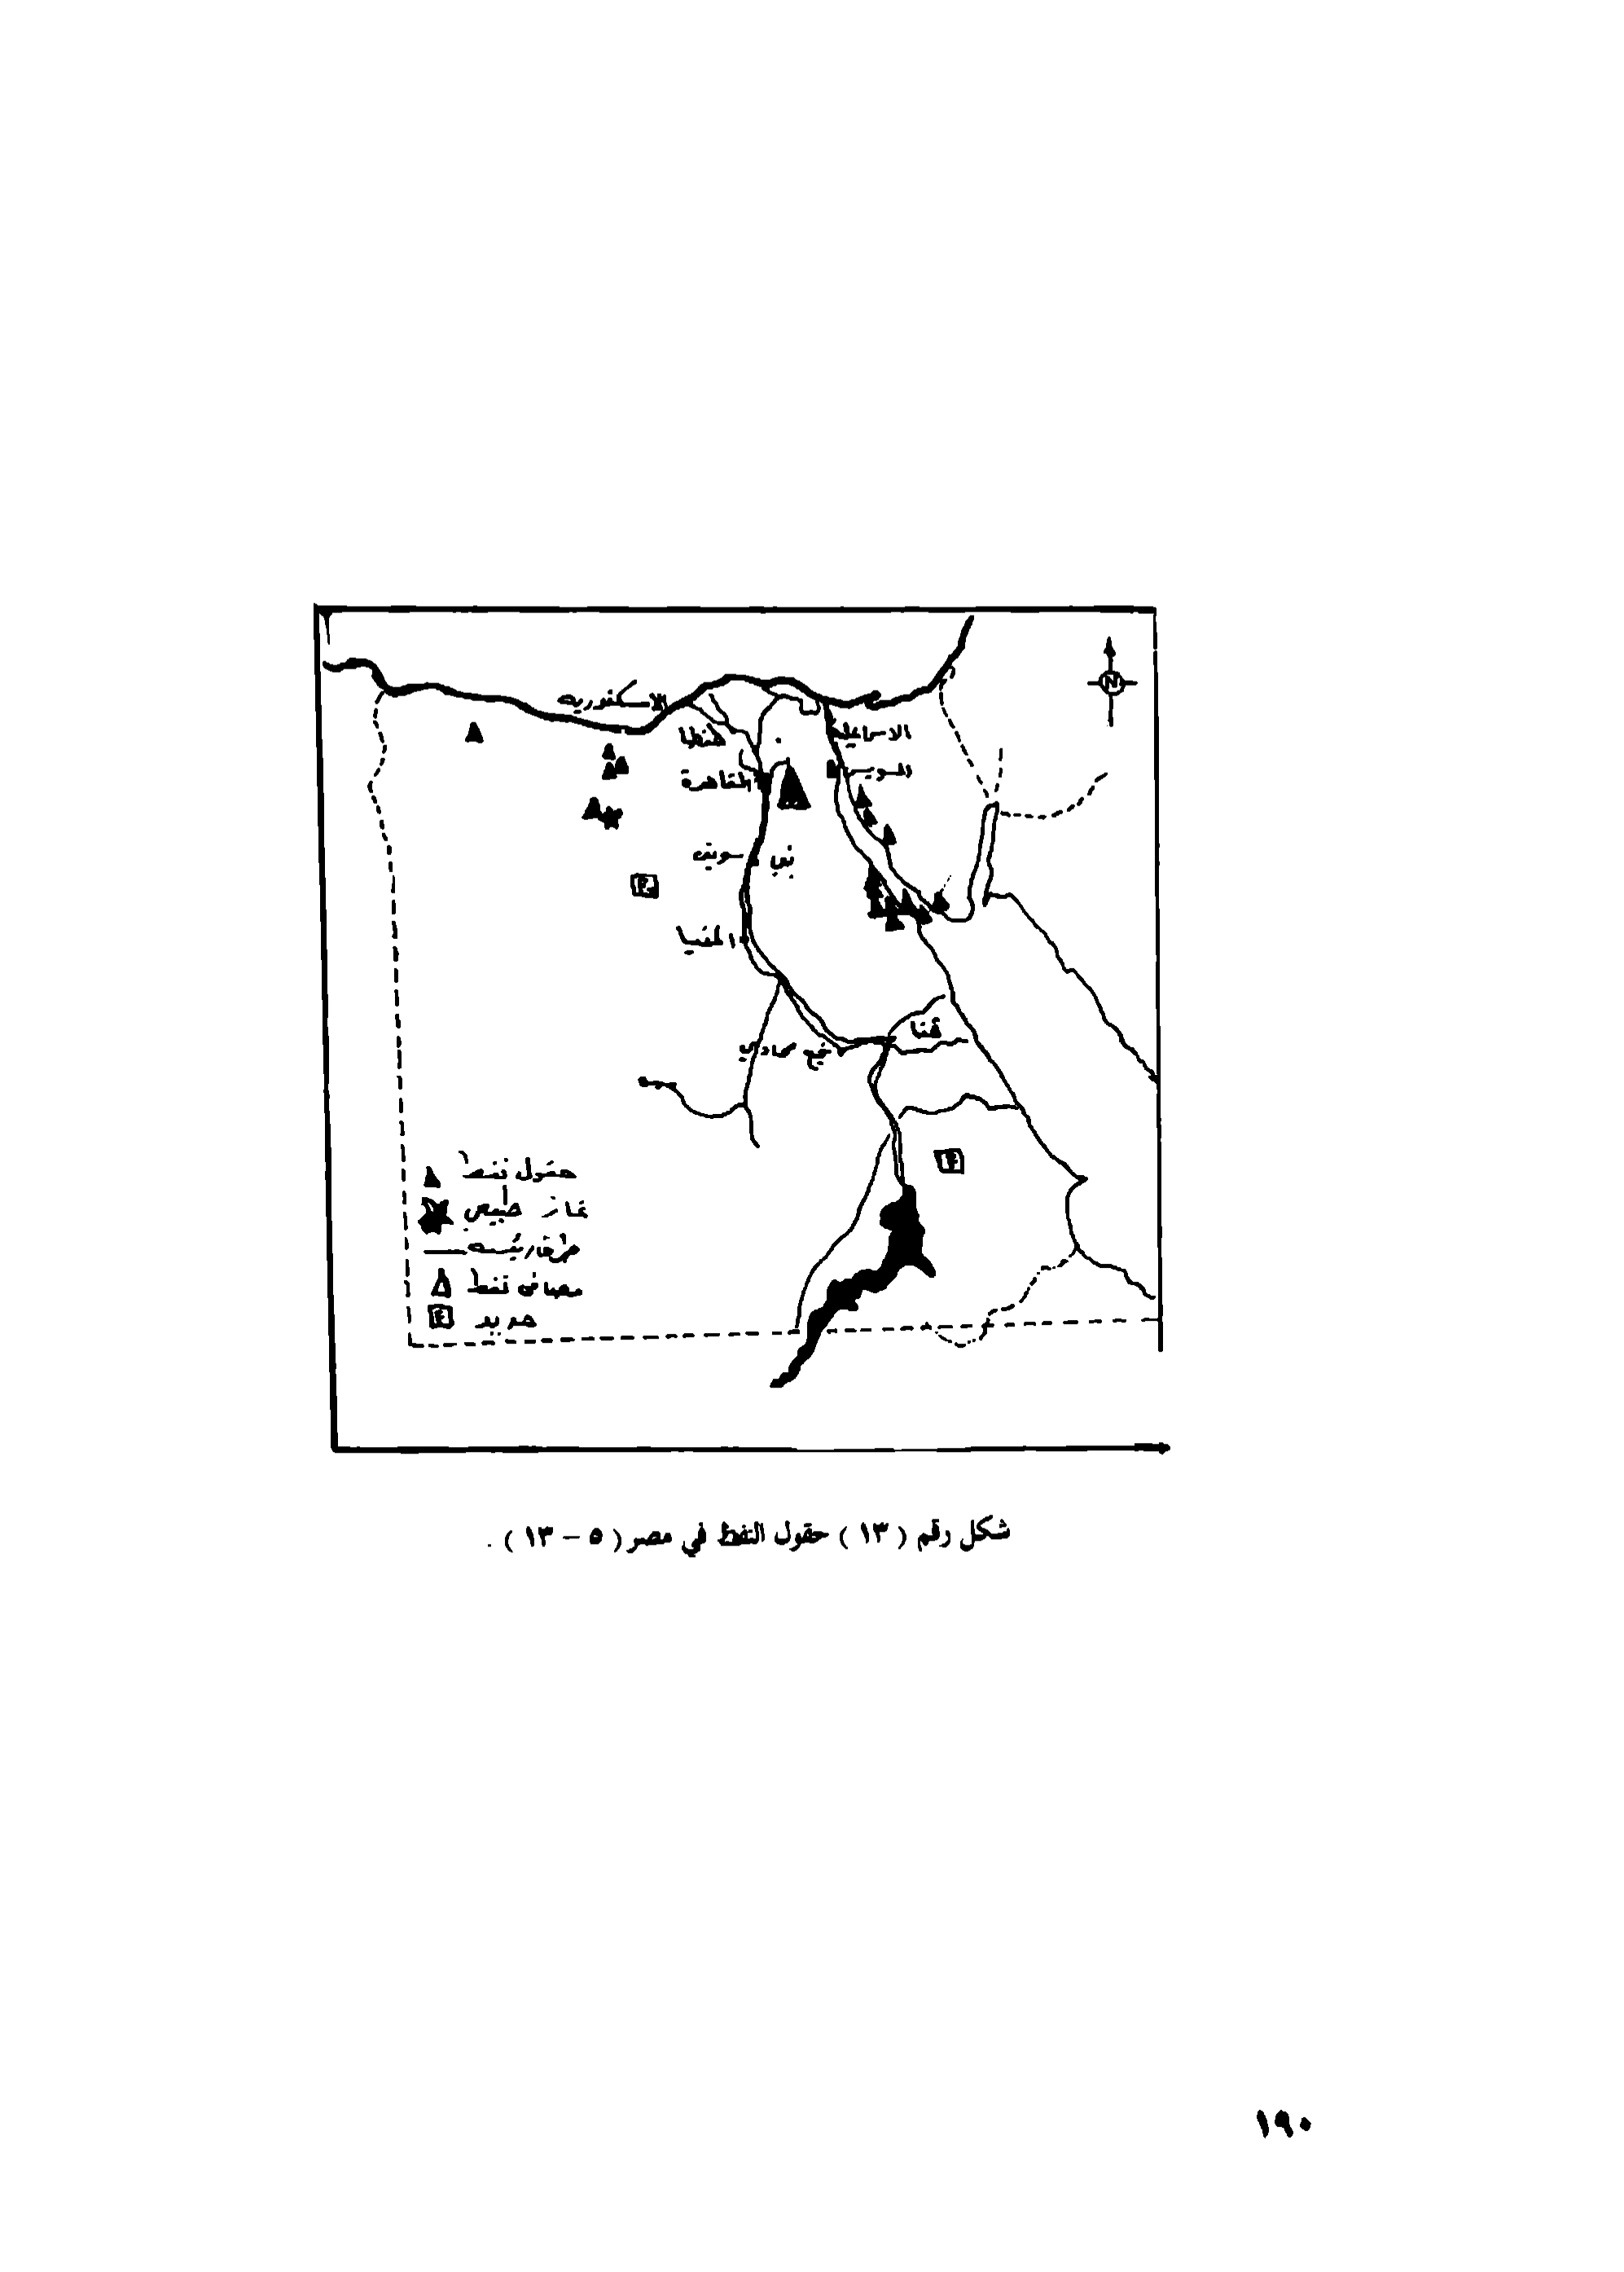 N
الاسكندريه
طنطا
الاسماعيليه
السويس
القاهرة
بني سويف
المنيا
قنا
نجع حمادي
حقول نفط
غاز طبيعي
طرق رئيسه
مصافي نفط
حديد
شكل رقم ( ١٣ ) حقول النفط في مصر ( ٥ – ١٣ ) .
١٩٠